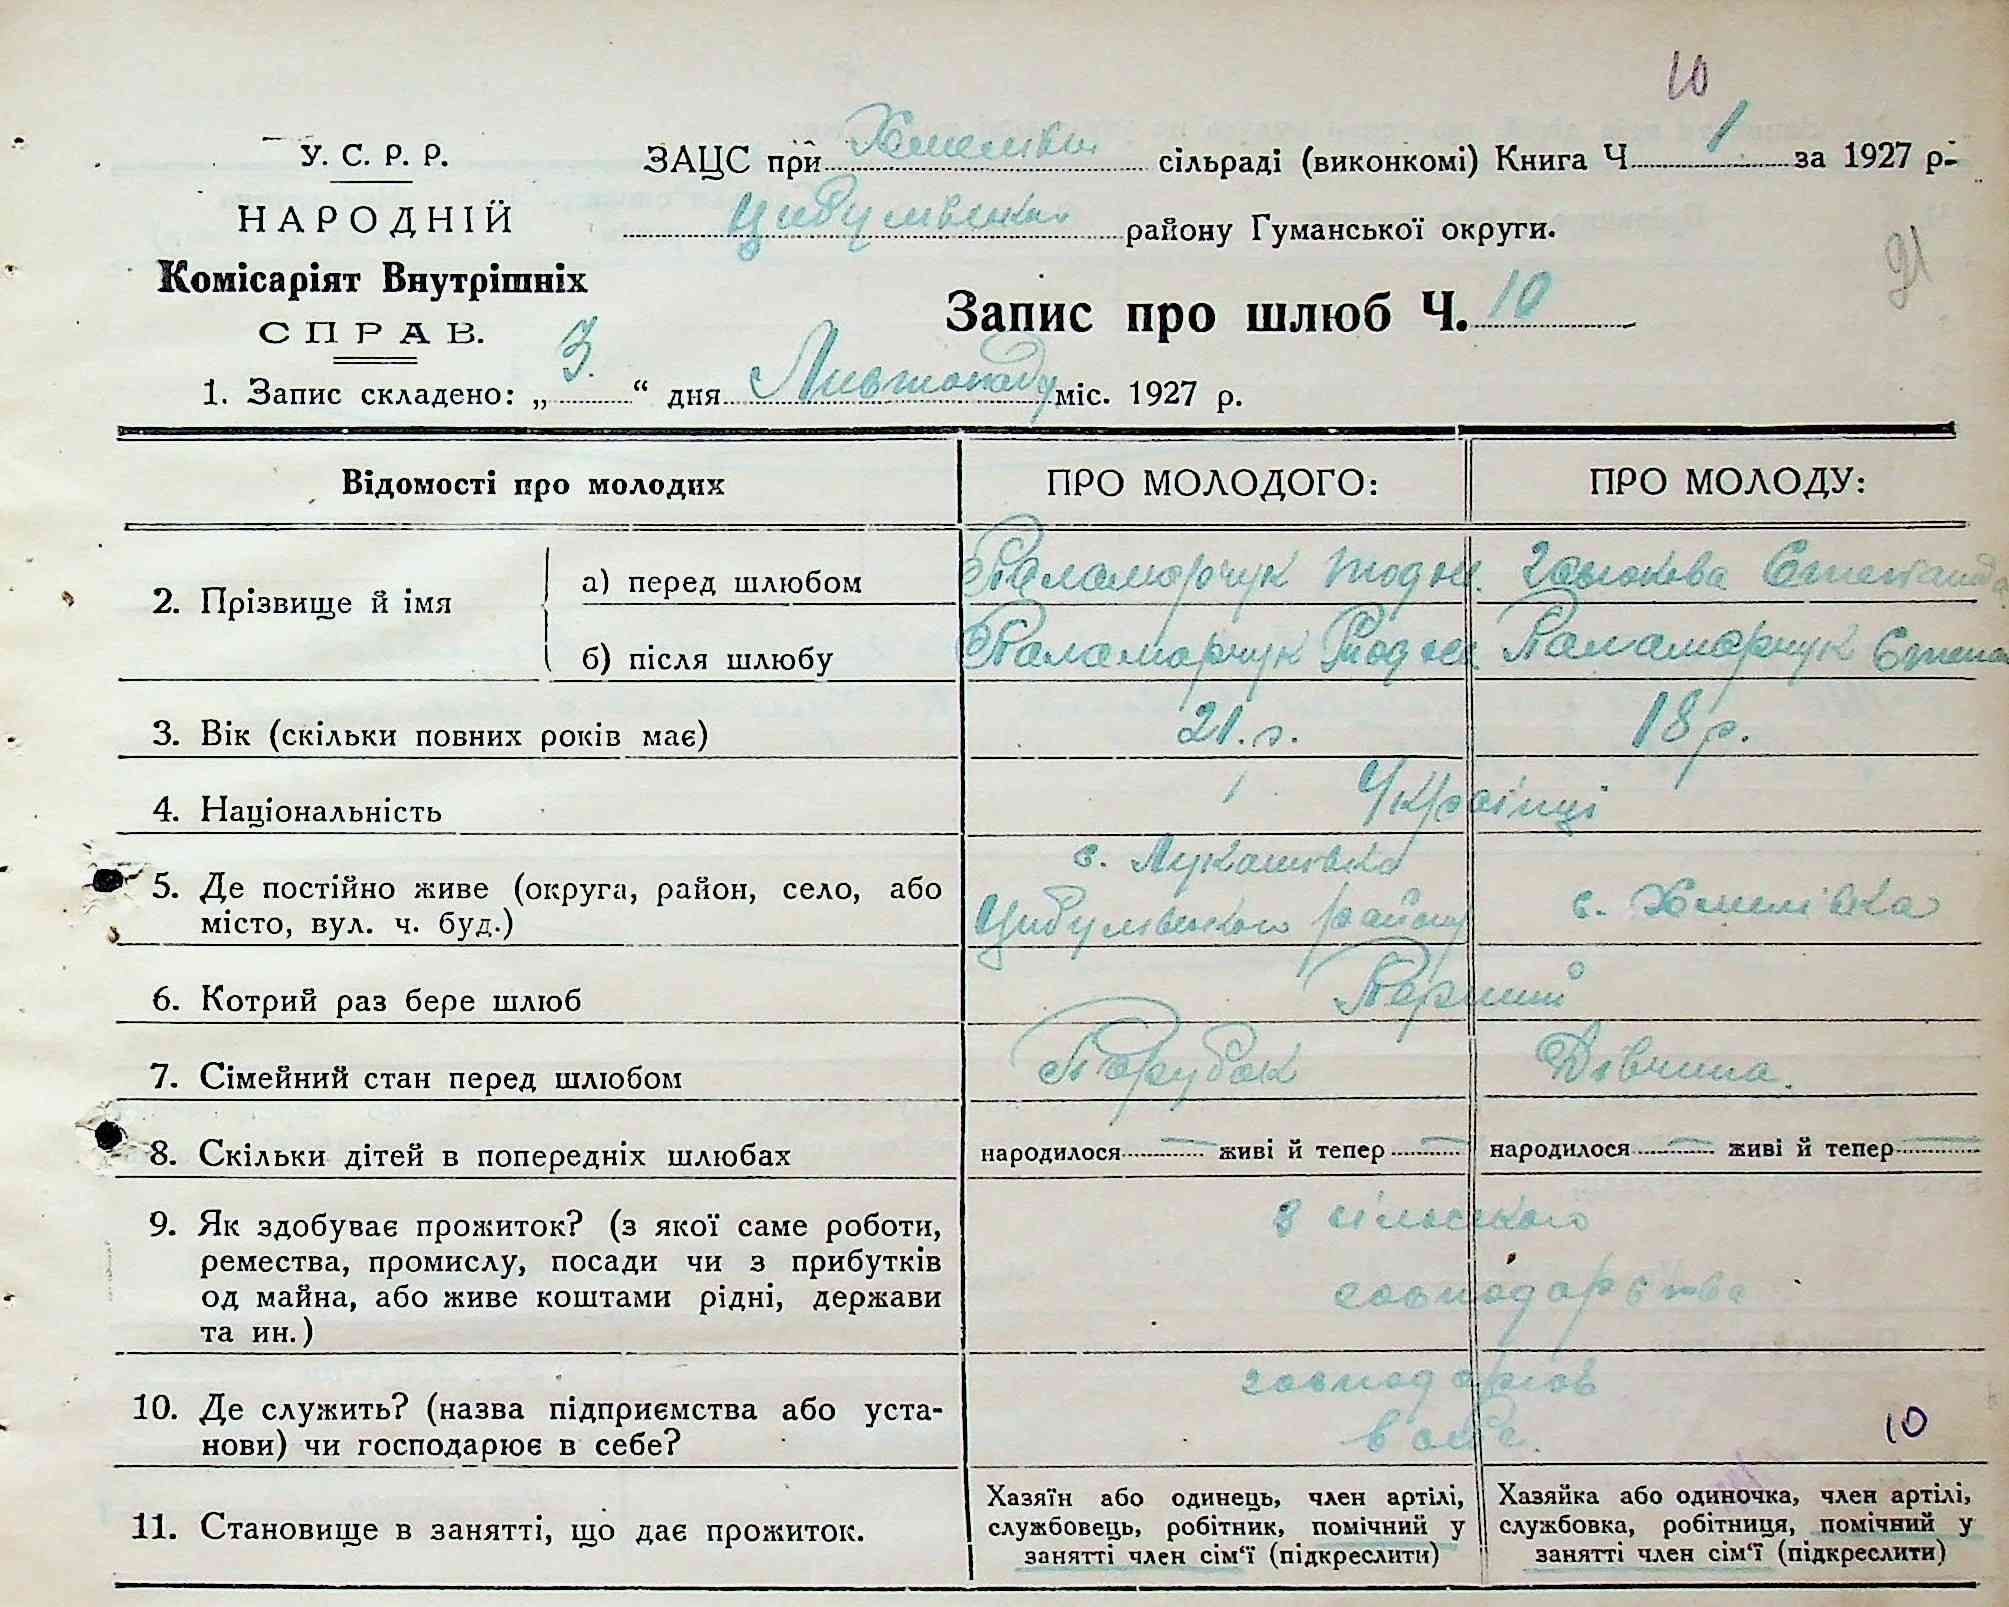 10
У. С. Р. Р.
ЗАЦС при Хмелевкій сільраді (виконкомі) Книга Ч. 1. за 1927 р.
НАРОДНІЙ
Цибулівській району Гуманської округи.
91
Комісаріят Внутрішніх
СПРАВ.
Запис про шлюб Ч. 10
1. Запис складено: „ 3. “ дня Листопаду міс. 1927 р.
Відомості про молодих
ПРО МОЛОДОГО:
ПРО МОЛОДУ:
2. Прізвище й імя
а) перед шлюбом
Паламарчук
б) після шлюбу
Паламарчук
Паламарчук
3. Вік (скільки повних років має)
21. р.
18 р.
4. Національність
Українці
5. Де постійно живе (округа, район, село, або
місто, вул. ч. буд.)
с. Лукашівка
Цибулівського району
с. Хмелівка
6. Котрий раз бере шлюб
Перший
7. Сімейний стан перед шлюбом
Парубок
Дівчина.
8. Скільки дітей в попередніх шлюбах
народилося — живі й тепер —
народилося — живі й тепер —
9. Як здобуває прожиток? (з якої саме роботи,
ремества, промислу, посади чи з прибутків
од майна, або живе коштами рідні, держави
та ин.)
з сільського
господарства
10. Де служить? (назва підприємства або уста-
нови) чи господарює в себе?
в себе.
10
11. Становище в занятті, що дає прожиток.
Хазяїн або одинець, член артілі,
службовець, робітник, помічний у
занятті член сім‘ї (підкреслити)
Хазяйка або одиночка, член артілі,
службовка, робітниця, помічний у
занятті член сім‘ї (підкреслити)